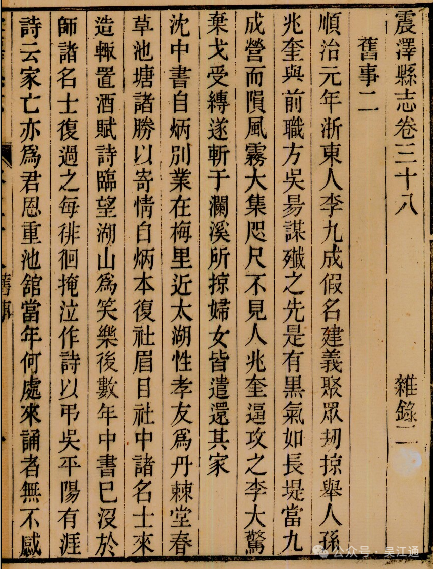 震澤縣志卷三十八 雜錄二
舊事二
順治元年浙東人李九成假名建義聚眾刼掠舉人孫
兆奎與前職方吳昜謀殲之先是有黑氣如長堤當九
成營而隕風霧大集咫尺不見人兆奎逼攻之李大驚
棄戈受縛遂斬于瀾溪所掠婦女皆遣還其家
沈中書自炳別業在梅里近太湖性孝友為丹棘堂春
草池塘諸勝以寄情自炳本復社眉目社中諸名士來
造輙置酒賦詩臨望湖山為笑樂後數年中書已沒於
師諸名士復過之每徘徊掩泣作詩以弔吳平陽有涯
詩云家亡亦為君恩重池舘當年何處來誦者無不感
舊事
公众号·吴江通